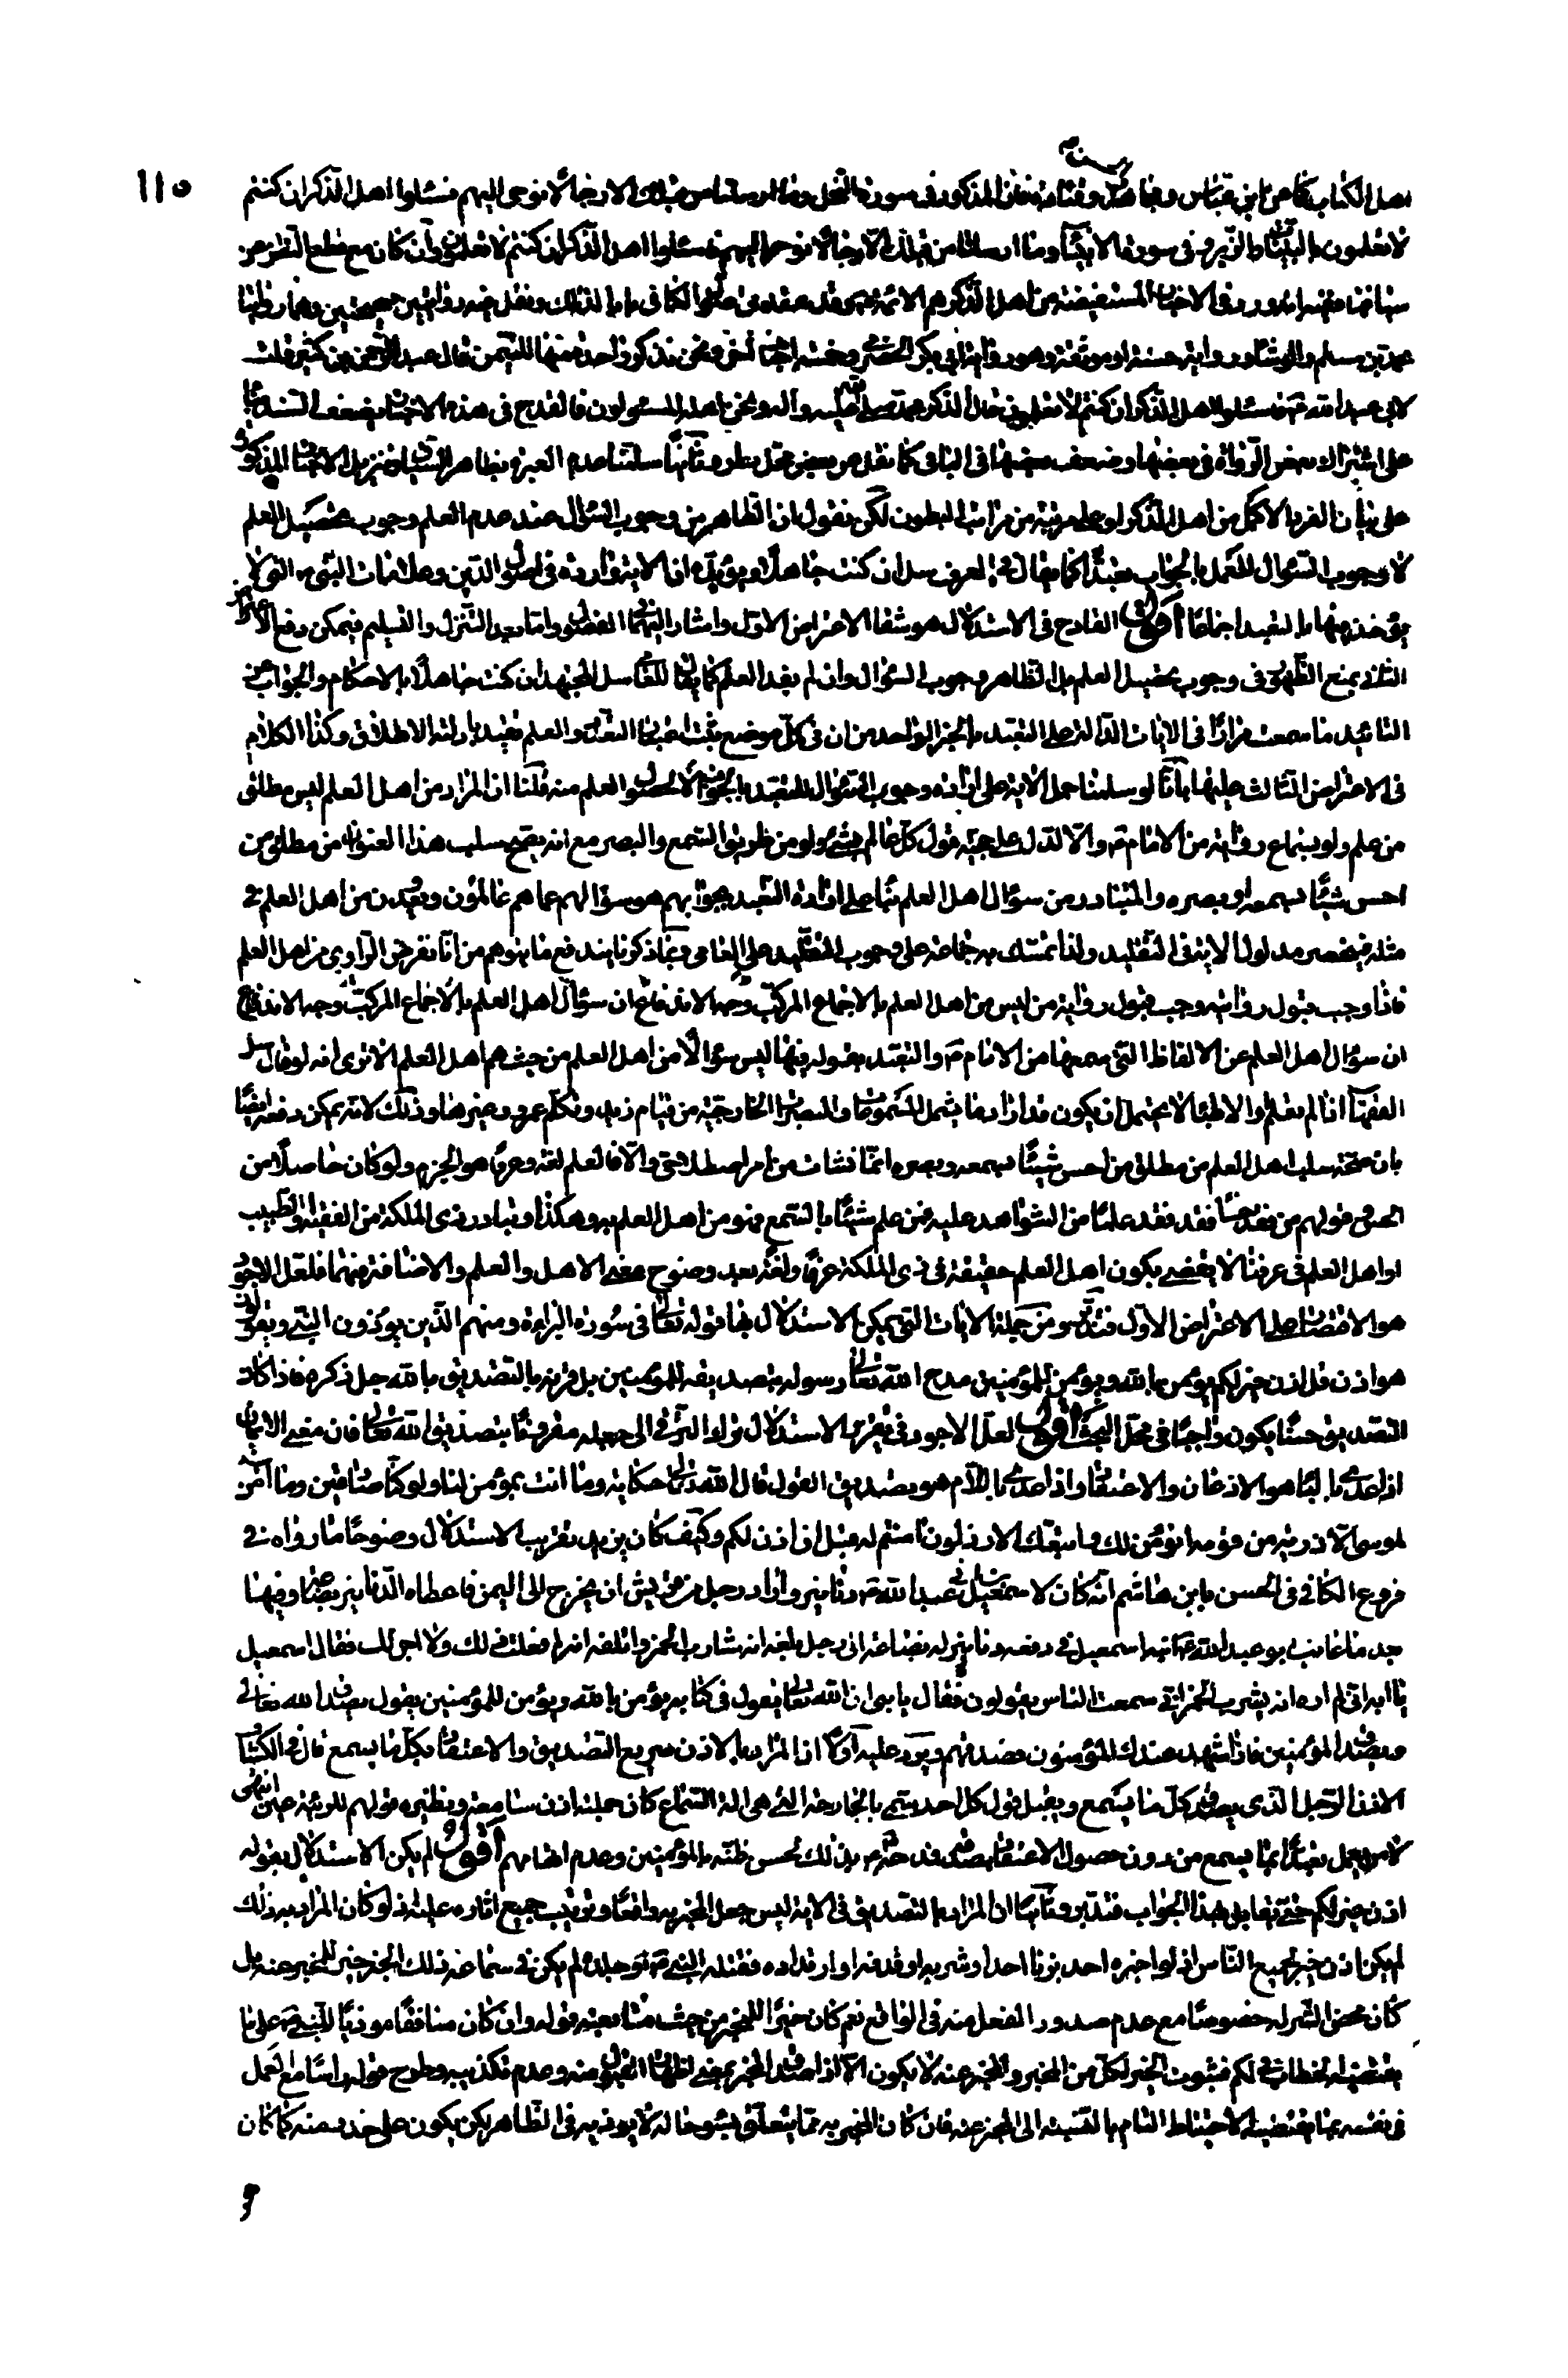 ١١٥
اهل الكتاب كما عن ابن عباس ومجاهد وقتادة فان المذكور في سورة النحل وما ارسلنا من قبلك الا رجالا نوحى اليهم فسئلوا اهل الذكر ان كنتم
لا تعلمون بالبينات والزبر وفي سورة الانبياء وما ارسلنا من قبلك الا رجالا نوحى اليهم فسئلوا اهل الذكر ان كنتم لا تعلمون وان كان مع قطع النظر عن
سياقها ففيه انه ورد في الاخبار المستفيضة ان اهل الذكر هم الائمة وقد عقد في اصول الكافي بابا لذلك ونقل فيه روايتين صحيحتين وهما روايتا
محمد بن مسلم والوشاء ورواية حسنة او موثقة وهو رواية ابي بكر الحضرمي وخمسة اخبار اخر ونحن نذكر واحدة منها للتيمن قال عبد الرحمن بن كثير قلت
لابي عبد الله ع فسئلوا اهل الذكر ان كنتم لا تعلمون قال الذكر محمد صلى الله عليه واله ونحن اهله المسئولون فالقدح في هذه الاخبار بضعف السند بناء
على اشتراك بعض الرواة في بعضها وضعف بعضها في الباقي كما نقل عن بعض محل نظر وثانيا سلمنا عدم العبرة بظاهر السياق او تنزيل الاخبار المذكورة
على بيان الفرد الاكمل من اهل الذكر او على مرتبة من مراتب البطون لكن نقول ان الظاهر من وجوب السؤال عند عدم العلم وجوب تحصيل العلم
لا وجوب السؤال للعمل بالجواب تعبدا كما يقال في العرف سل ان كنت جاهلا ويؤيده ان الاية واردة في اصول الدين وعلامات النبي ص التي لا
يؤخذ فيها بالتعبد اجماعا اقول القادح في الاستدلال هو شقا الاعتراض الاول واما بعد التنزل والتسليم فيمكن دفع الاعتراض
الثاني بمنع الظهور في وجوب تحصيل العلم بل الظاهر وجوب السؤال وان لم يفد العلم كما يقال للعامي سل المجتهد ان كنت جاهلا بالاحكام والجواب عن
التائيد ما سمعت مرارا في الايات الدالة على التعبد بالخبر الواحد من ان في كل موضع يثبت اعتبار التعدد والعلم يقيد به ادلة الاطلاق وكذا الكلام
في الاعتراض الثالث عليها بانا لو سلمنا حمل الاية على ارادة وجوب السؤال للتعبد بالجواب لا لحصول العلم منه قلنا ان المراد من اهل العلم ليس مطلق
من علم ولو بسماع رواية من الامام ع والا لدل على حجية قول كل عالم بشئ ولو من طريق السمع والبصر مع انه يصح سلب هذا العنوان من مطلق من
احس شيئا بسمعه او بصره والمتبادر من سؤال اهل العلم بناء على ارادة التعبد بجوابهم هو سؤالهم عما هم عالمون ويعدون من اهل العلم في
مثله فينحصر مدلول الاية في التقليد ولذا تمسك به جماعة على وجوب التقليد على العامي وبما ذكرنا يندفع ما يتوهم من انا نفرض الراوي من اهل العلم
فاذا وجب قبول روايته وجب قبول رواية من ليس من اهل العلم بالاجماع المركب وجه الاندفاع ان سؤال اهل العلم بالاجماع المركب وجه الاندفاع
ان سؤال اهل العلم عن الالفاظ التي سمعها من الامام ع والتعبد بقوله فيها ليس سؤالا من اهل العلم من حيث هم اهل العلم الا ترى انه لو قال سل
الفقهاء اذا لم تعلم او الاطباء لا يحتمل ان يكون قد اراد ما يشمل المسموعات والمبصرات الخارجية من قيام زيد وتكلم عمرو وغيرهما وذلك لانه يمكن دفعه ايضا
بان صحة سلب اهل العلم من مطلق من احس شيئا بسمعه وبصره انما نشأت من امر اصطلاحي والا فالعلم لغة وعرفا هو الجزم ولو كان حاصلا من
الحس في قولهم من فقد حسا فقد فقد علما من الشواهد عليه فمن علم شيئا بالسمع فهو من اهل العلم به وهكذا وتبادر ذي الملكة من الفقيه والطبيب
او اهل العلم في عرفنا لا يقتضي بكون اهل العلم حقيقة في ذي الملكة عرفا ولغة بعد وضوح معنى الاهل والعلم والاضافة منهما فلعل الاجود
هو الاقتصار على الاعتراض الاول فتدبر ومن جملة الايات التي يمكن الاستدلال بها قوله تعالى في سورة البراءة ومنهم الذين يؤذون النبي ويقولون
هو اذن قل اذن خير لكم يؤمن بالله ويؤمن للمؤمنين مدح الله تعالى رسوله بتصديقه للمؤمنين بل قرنه بالتصديق بالله جل ذكره فاذا كان
التصديق حسنا يكون واجبا في محل البحث اقول لعل الاجود في تقرير الاستدلال ترك الترقي الى جعله مقرونا بتصديق الله تعالى فان معنى الايمان
اذا عدي بالباء هو الاذعان والاعتقاد واذا عدي باللام هو تصديق القول قال الله تعالى حكاية وما انت بمؤمن لنا ولو كنا صادقين وما آمن
لموسى الا ذرية من قومه انؤمن لك واتبعك الارذلون آمنتم له قبل ان اذن لكم وكيف كان يزيد تقريب الاستدلال وضوحا ما رواه في
فروع الكافي في الحسن بابن هاشم انه كان لاسمعيل بن ابي عبد الله ع دنانير واراد رجل من قريش ان يخرج الى اليمن فاعطاه الدنانير بضاعة وفيها
بعد ما عاتب ابو عبد الله ع ابنه اسمعيل في دفعه دنانير له بضاعة الى رجل بلغه انه شارب الخمر واتلفه انه لم فعلت ذلك ولا اجر لك فقال اسمعيل
يا ابه اني لم اره انه يشرب الخمر اني سمعت الناس يقولون فقال يا بني ان الله تعالى يقول في كتابه يؤمن بالله ويؤمن للمؤمنين يقول يصدق الله تعالى
ويصدق المؤمنين فاذا شهد عندك المؤمنون فصدقهم ويرد عليه اولا ان المراد بالاذن سريع التصديق والاعتقاد بكل ما يسمع قال في الكشاف
الاذن الرجل الذي يصدق كل ما يسمع ويقبل قول كل احد سمي بالجارحة التي هي آلة السماع كان جملته اذن سامعة ونظيره قولهم للربيئة عين انتهى
لا من يعمل تعبدا بما يسمع من دون حصول الاعتقاد بصدقه فمدحه ص بذلك لحسن ظنه بالمؤمنين وعدم اتهامهم اقول لم يكن الاستدلال بقوله
اذن خير لكم حتى يقابل بهذا الجواب فتدبر وثانيا ان المراد بالتصديق في الاية ليس جعل المخبر به واقعا وترتيب جميع اثاره عليه اذ لو كان المراد به ذلك
لم يكن اذن خير لجميع الناس اذ لو اخبره احد بزنا احد او شربه او قذفه او ارتداده فقتله النبي ص او جلده لم يكن في سماعه ذلك الخبر خير للمخبر عنه بل
كان محض الشر له خصوصا مع عدم صدور الفعل منه في الواقع نعم كان خيرا للمخبر من حيث متابعته قوله وان كان منافقا موذيا للنبي ص على ما
يقتضيه الخطاب في لكم فثبوت الخير لكل من المخبر والمخبر عنه لا يكون الا اذا صدق المخبر بمعنى اظهار القبول منه وعدم تكذيبه وطرح قوله راسا مع العمل
في نفسه بما يقتضيه الاحتياط التام بالنسبة الى المخبر عنه فان كان المخبر به مما يتعلق بسوء حاله لا يؤذيه في الظاهر لكن يكون على حذر منه كما كان